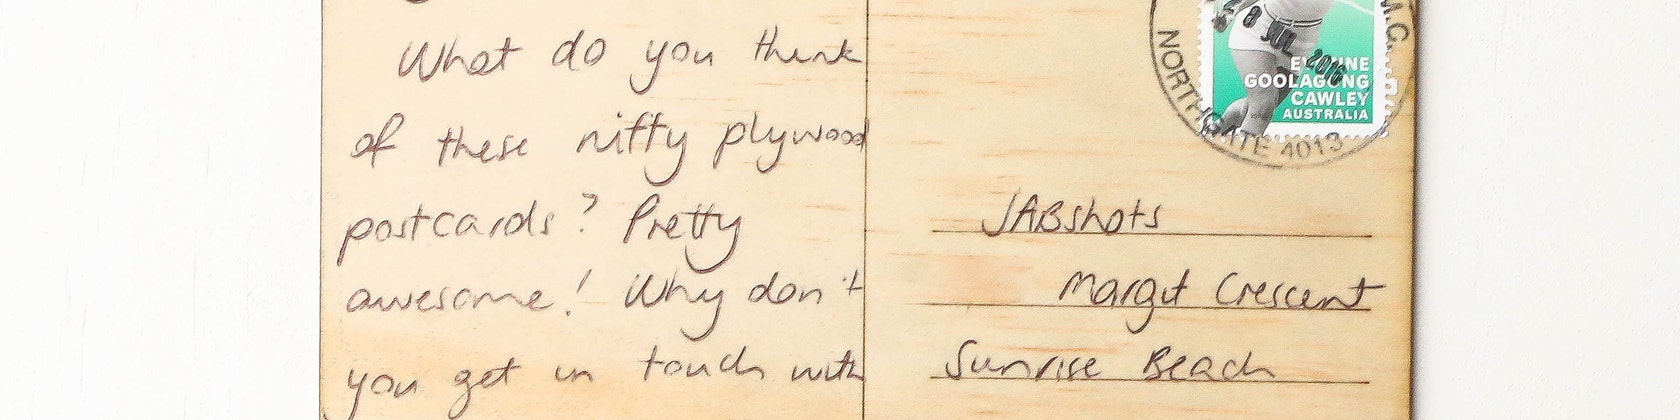 What do you think
of these nifty plywood
postcards? Pretty
awesome! Why don't
you get in touch with
M.C.
NORTHGATE 4013
8 JUL 2016
EVONNE
GOOLAGONG
CAWLEY
AUSTRALIA
JABshots
Margit Crescent
Sunrise Beach